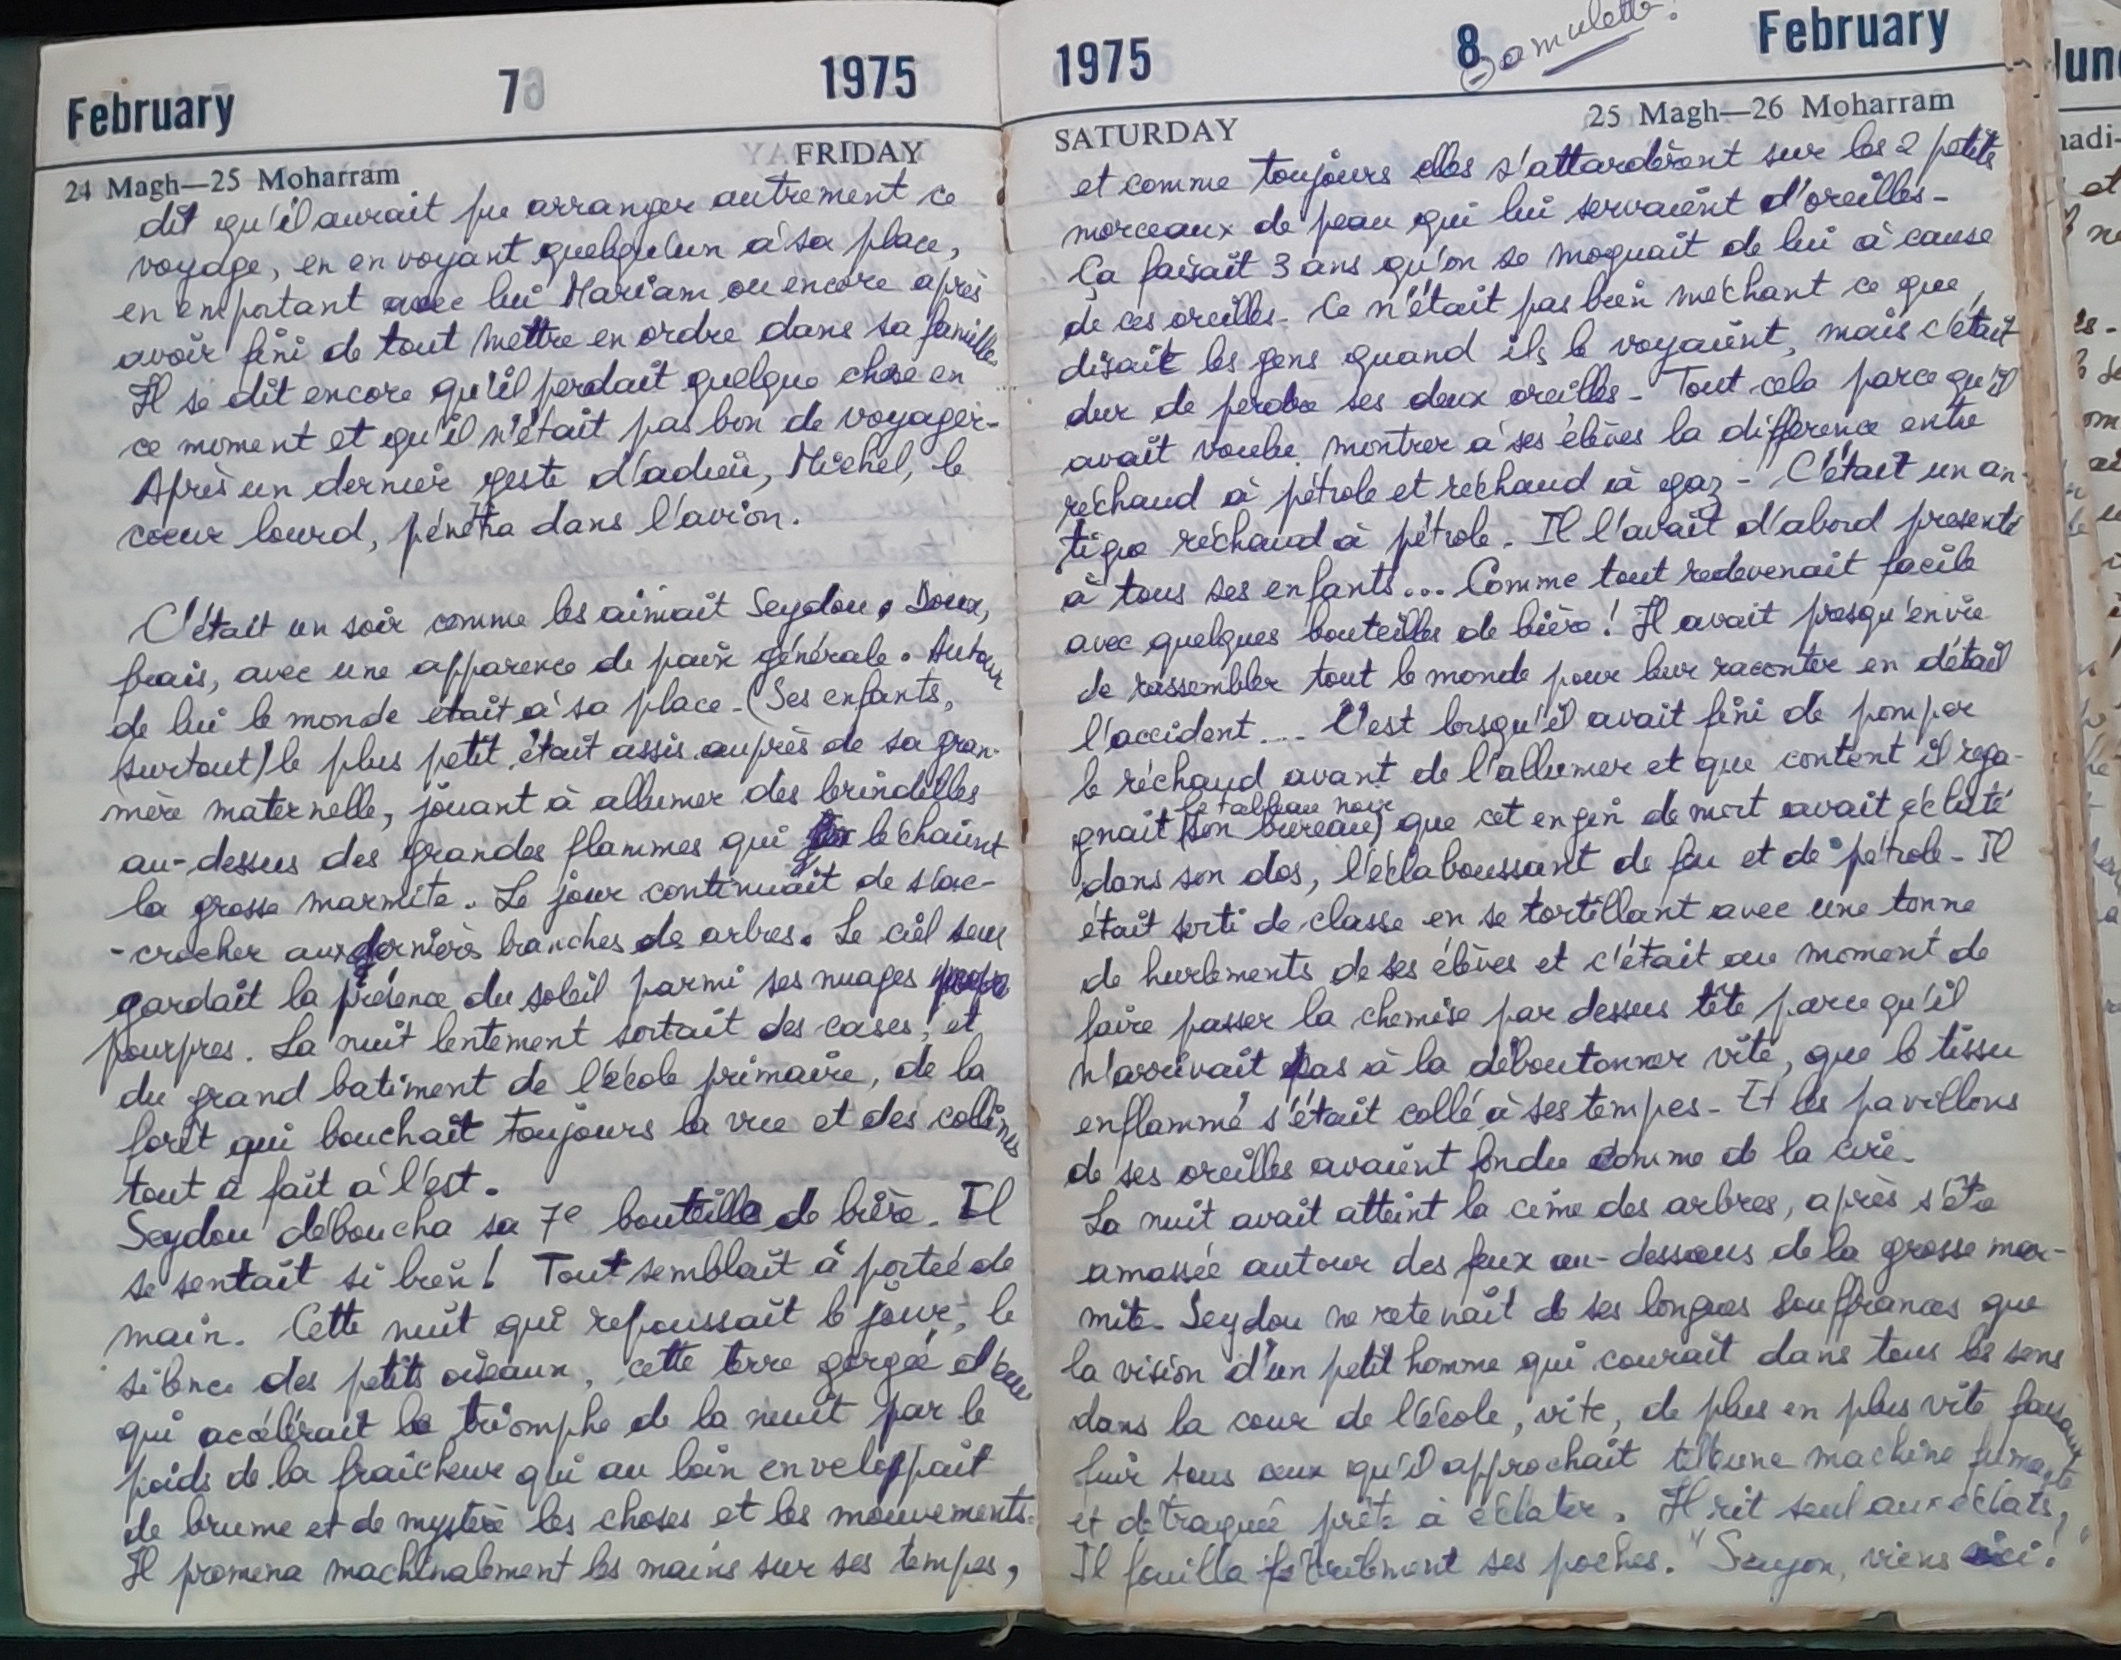 February 7 1975
24 Magh—25 Moharram FRIDAY
dit qu'il aurait pu arranger autrement ce
voyage, en envoyant quelqu'un à sa place,
en emportant avec lui Mariam ou encore après
avoir fini de tout mettre en ordre dans sa famille
Il se dit encore qu'il perdait quelque chose en
ce moment et qu'il n'était pas bon de voyager-
Après un dernier geste d'adieu, Michel, le
coeur lourd, pénétra dans l'avion.
C'était un soir comme les aimait Seydou. Doux,
frais, avec une apparence de paix générale. Autour
de lui le monde était à sa place - (Ses enfants,
surtout) le plus petit était assis auprès de sa gran-
mère maternelle, jouant à allumer des brindilles
au-dessus des grandes flammes qui léchaient
la grosse marmite. Le jour continuait de s'ac-
-crocher aux dernières branches de arbres. Le ciel seul
gardait la présence du soleil parmi ses nuages
pourpres. La nuit lentement sortait des cases, et
du grand batiment de l'école primaire, de la
forêt qui bouchait toujours la vue et des collines
tout à fait à l'est.
Seydou déboucha sa 7e bouteille de bière. Il
se sentait si bien! Tout semblait à portée de
main. Cette nuit qui repoussait le jour, le
silence des petits oiseaux, cette terre gorgée d'eau
qui accélérait le triomphe de la nuit par le
poids de la fraîcheur qui au loin enveloppait
de brume et de mystère les choses et les mouvements.
Il promena machinalement les mains sur ses tempes,
1975 8 February
amulette!
SATURDAY 25 Magh—26 Moharram
et comme toujours elles s'attardèrent sur les 2 petits
morceaux de peau qui lui servaient d'oreilles-
Ça faisait 3 ans qu'on se moquait de lui à cause
de ces oreilles - Ce n'était pas bien méchant ce que
disait les gens quand ils le voyaient, mais c'était
dur de perdre ses deux oreilles - Tout cela parce qu'il
avait voulu montrer à ses élèves la différence entre
réchaud à pétrole et réchaud à gaz - C'était un an-
tique réchaud à pétrole. Il l'avait d'abord présenté
à tous ses enfants... Comme tout redevenait facile
avec quelques bouteilles de bière! Il avait presqu'envie
de rassembler tout le monde pour leur raconter en détail
l'accident... C'est lorsqu'il avait fini de pomper
le réchaud avant de l'allumer et que content il rega-
le tableau noir
gnait (son bureau) que cet engin de mort avait éclaté
dans son dos, l'éclaboussant de feu et de pétrole - Il
était sorti de classe en se tortillant avec une tonne
de hurlements de ses élèves et c'était au moment de
faire passer la chemise par dessus tête parce qu'il
n'arrivait pas à la déboutonner vite, que le tissu
enflammé s'était collé à ses tempes - Et les pavillons
de ses oreilles avaient fondu comme de la cire.
La nuit avait atteint la cime des arbres, après s'être
amassée autour des feux au-dessous de la grosse mar-
mite - Seydou ne retenait de ses longues souffrances que
la vision d'un petit homme qui courait dans tous les sens
dans la cour de l'école, vite, de plus en plus vite faisant
fuir tous ceux qu'il approchait telle une machine fumante
et détraquée prête à éclater. Il rit seul aux éclats,
Il fouilla fébrilement ses poches. "Seyon, viens ici!"
June